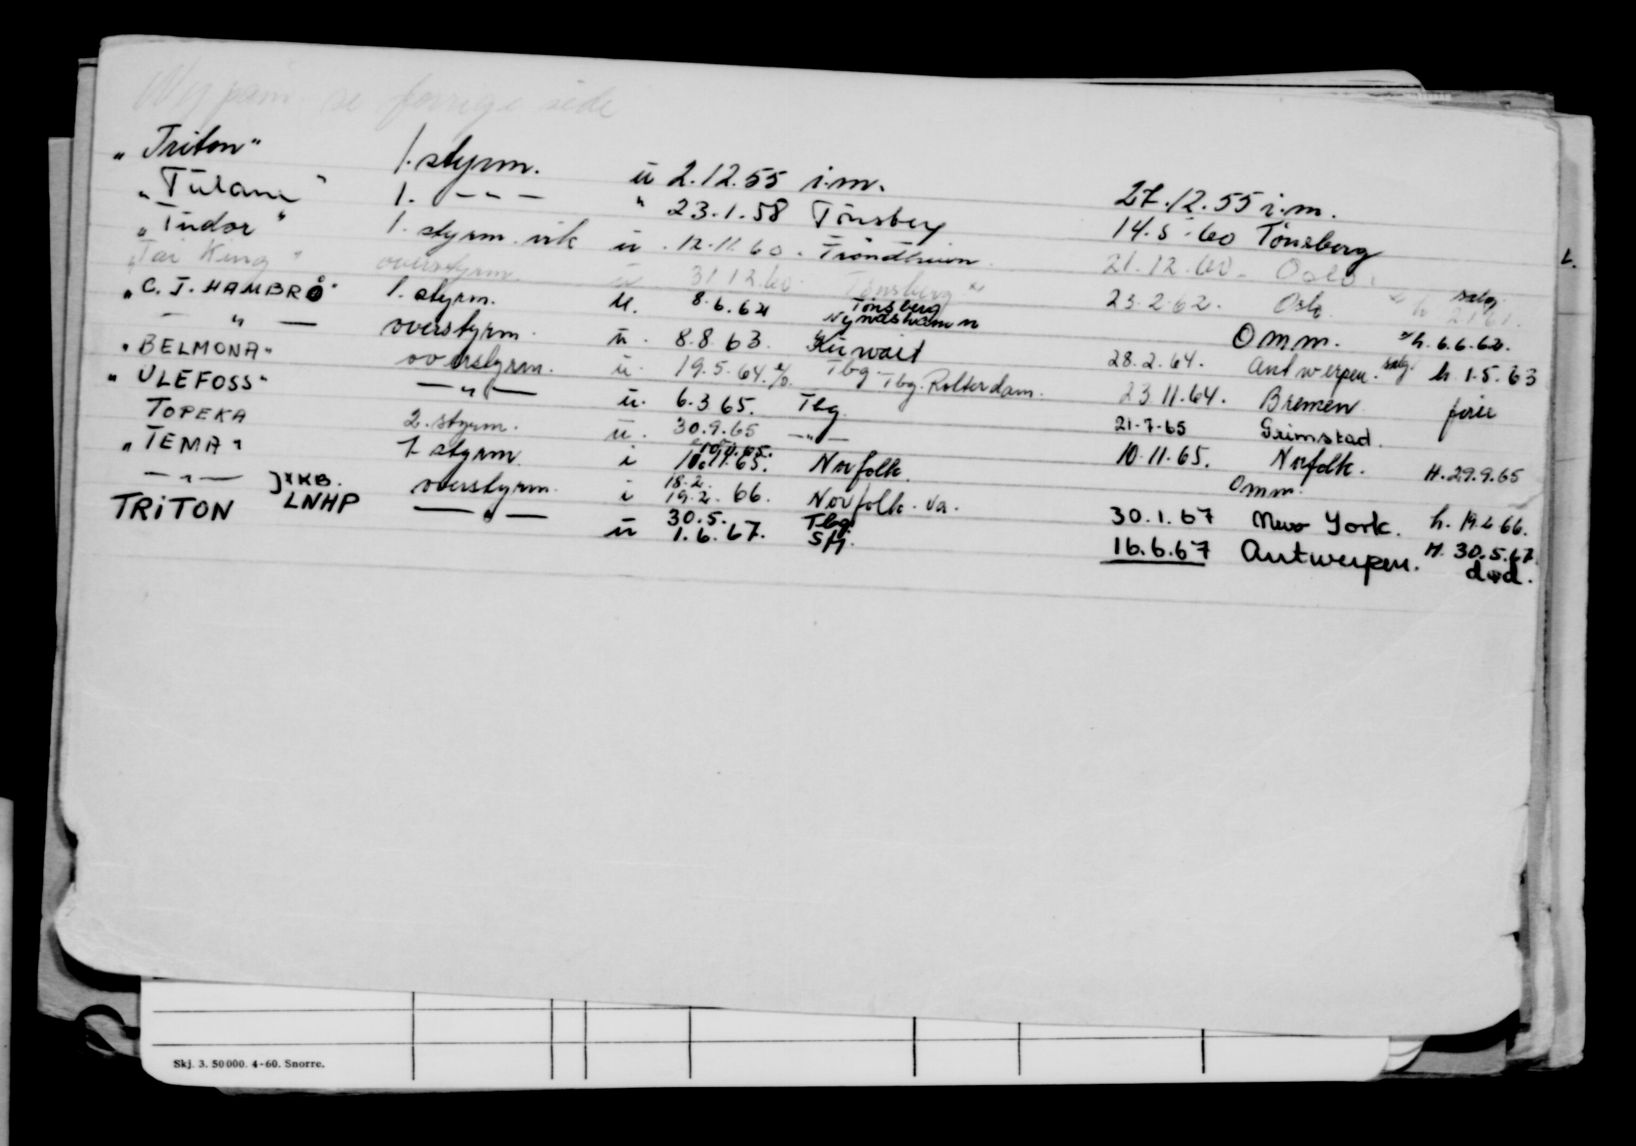 se forrige side
"Triton" 1. styrm. ü 2.12.55 i.m. 27.12.55 i.m.
"Tulane" 1. - - - " 23.1.58 Tönsberg 14.5.60 Tönsberg
"Tudor" 1. styrm. vik ü 12.11.60. Trondheim 21.12.60. Oslo.
"Tai King" overstyrm. ü 31.12.60 Tønsberg 23.2.62. Oslo. salg
"C. J. HAMBRO" 1. styrm. ü. 8.6.62 Tönsberg Nynäshamn Omm. h. 6.6.62.
— " — overstyrm. ü. 8.8.63. Kuwait 28.2.64. Antwerpen. salg. h. 1.5.63
"BELMONA" overstyrm. ü. 19.5.64. Tbg. Tbg. Rotterdam. 23.11.64. Bremen ferie
"ULEFOSS" — " — ü. 6.3.65. Tbg. 21.7.65 Grimstad.
TOPEKA 2. styrm. ü. 30.9.65 — " — 10.11.65. Norfolk. H. 29.9.65
"TEMA" 1. styrm. i 10.11.65. Norfolk. Omm.
— " — } KB. overstyrm. i 18.2. 19.2. 66. Norfolk. Va. 30.1.67 New York. h. 19.2.66.
TRiTON LNHP — " — ü 30.5. 1.6.67. Tbg. 16.6.67 Antwerpen. H. 30.5.67
død.
L.
Skj. 3. 50000. 4-60. Snorre.